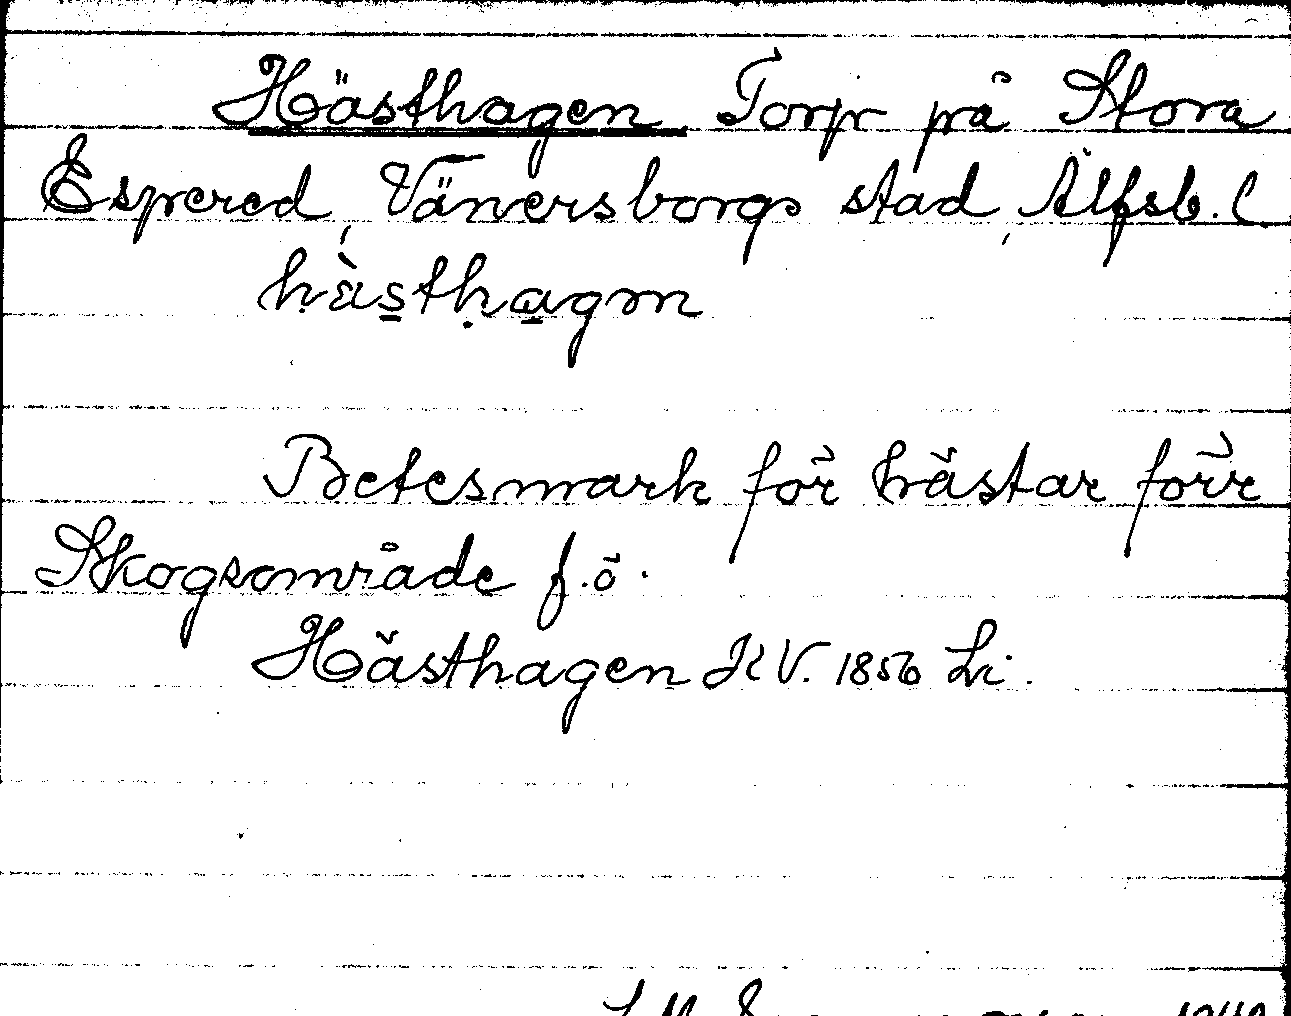 Hästhagen Torp på Stora
Espered, Vänersborgs stad, Älfsb. l
hàsthagm
Betesmark för hästar förr
Skogsområde f.ö.
Hästhagen KV. 1856 Li.